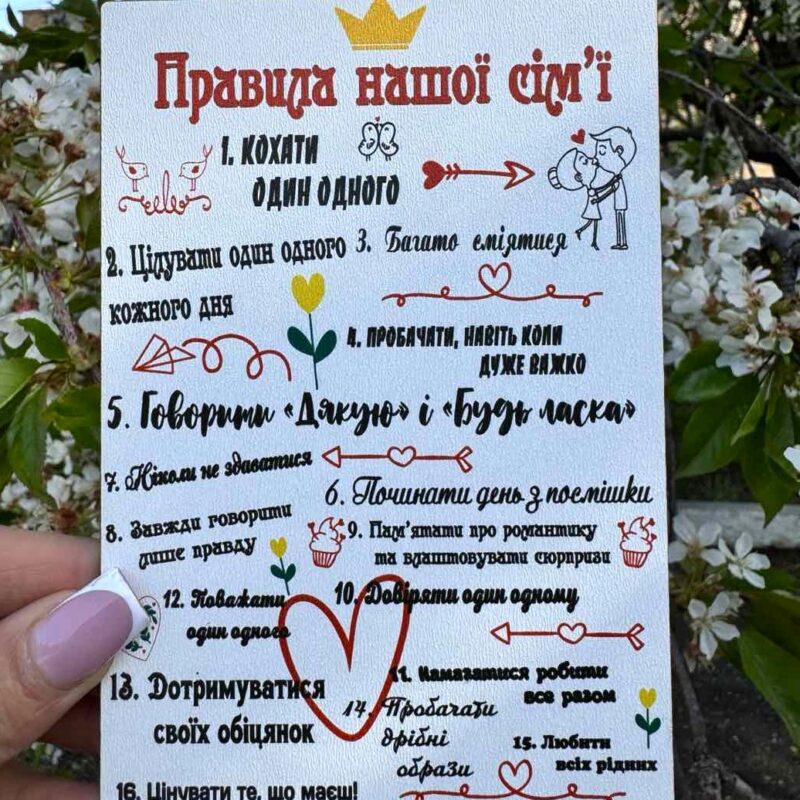 Правила нашої сім'ї
1. КОХАТИ
ОДИН ОДНОГО
2. Цілувати один одного
кожного дня
3. Багато сміятися
4. ПРОБАЧАТИ, НАВІТЬ КОЛИ
ДУЖЕ ВАЖКО
5. Говорити «Дякую» і «Будь ласка»
7. Ніколи не здаватися
6. Починати день з посмішки
8. Завжди говорити
лише правду
9. Пам'ятати про романтику
та влаштовувати сюрпризи
12. Поважати
один одного
10. Довіряти один одному
11. Намагатися робити
все разом
13. Дотримуватися
своїх обіцянок
14. Пробачати
дрібні
образи
15. Любити
всіх рідних
16. Цінувати те, що маєш!